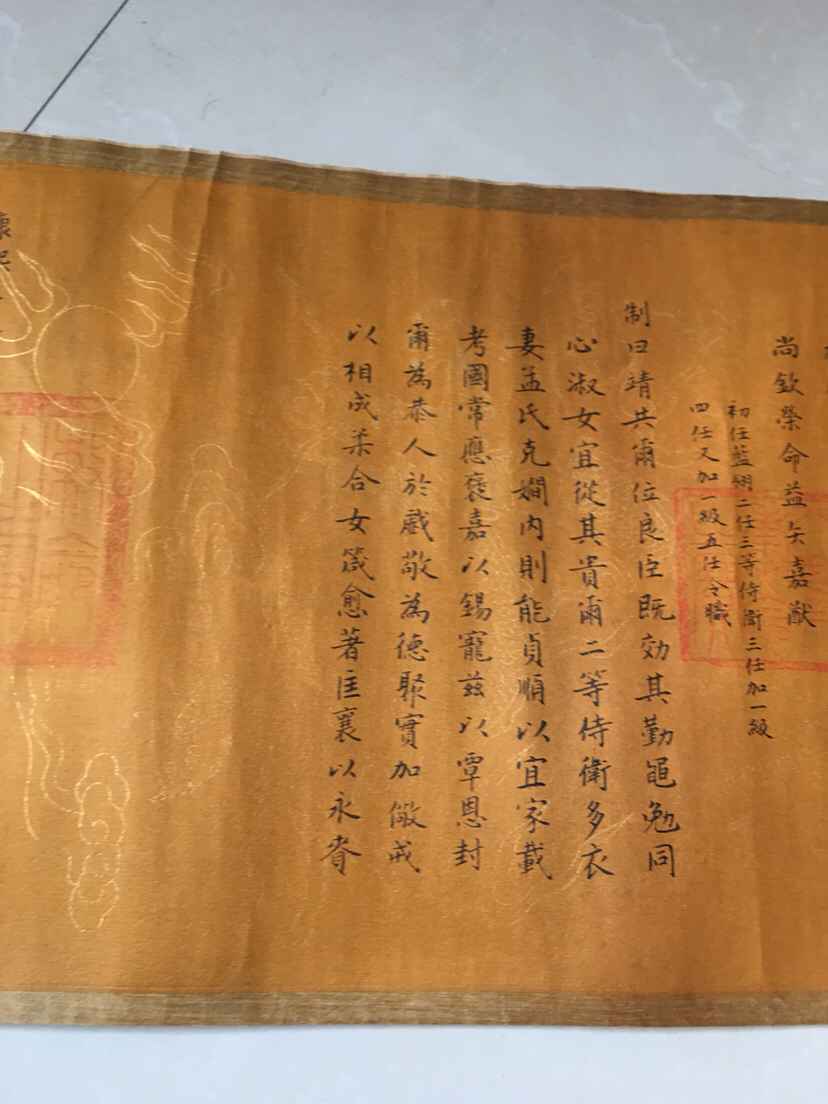 尚欽榮命益矢嘉猷
初任藍翎二任三等侍衛三任加一級
四任又加一級五任今職
制曰靖共爾位良臣既効其勤黽勉同
心淑女宜從其貴爾二等侍衛多衣
妻孟氏克嫺内則能貞順以宜家載
考國常應褒嘉以錫寵兹以覃恩封
爾為恭人於戲敬為德聚實加儆戒
以相成柔合女箴愈著匡襄以永賚
康熙